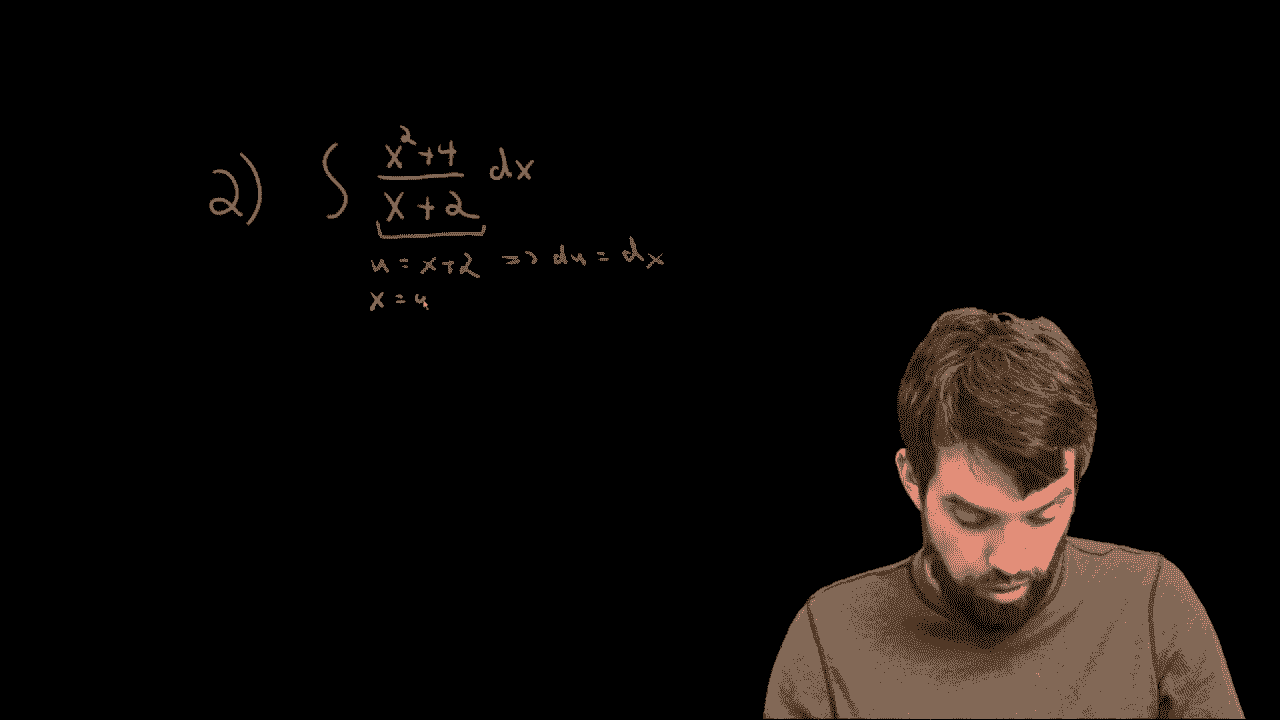 2) ∫ x²+4 / x+2 dx
u = x+2 => du = dx
x = u